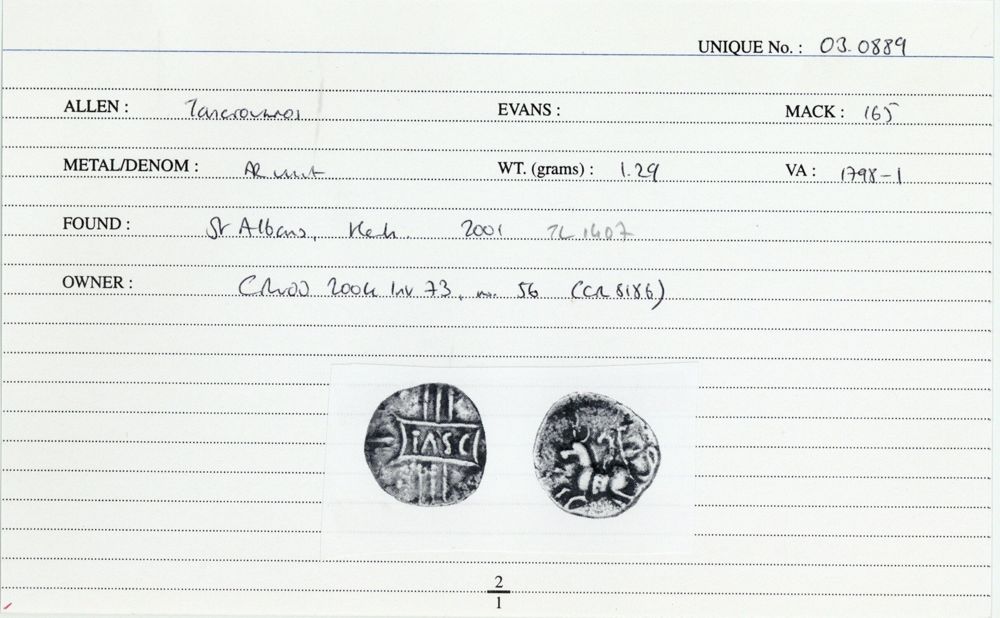 UNIQUE No. : 03.0889
ALLEN : Tasciovanos EVANS : MACK : 165
METAL/DENOM : AR unit WT. (grams) : 1.29 VA : 1798-1
FOUND : St Albans, Herts. 2001 TL 1407
OWNER : 2004 73, no. 56 (CR 8186)
TASC
2
1